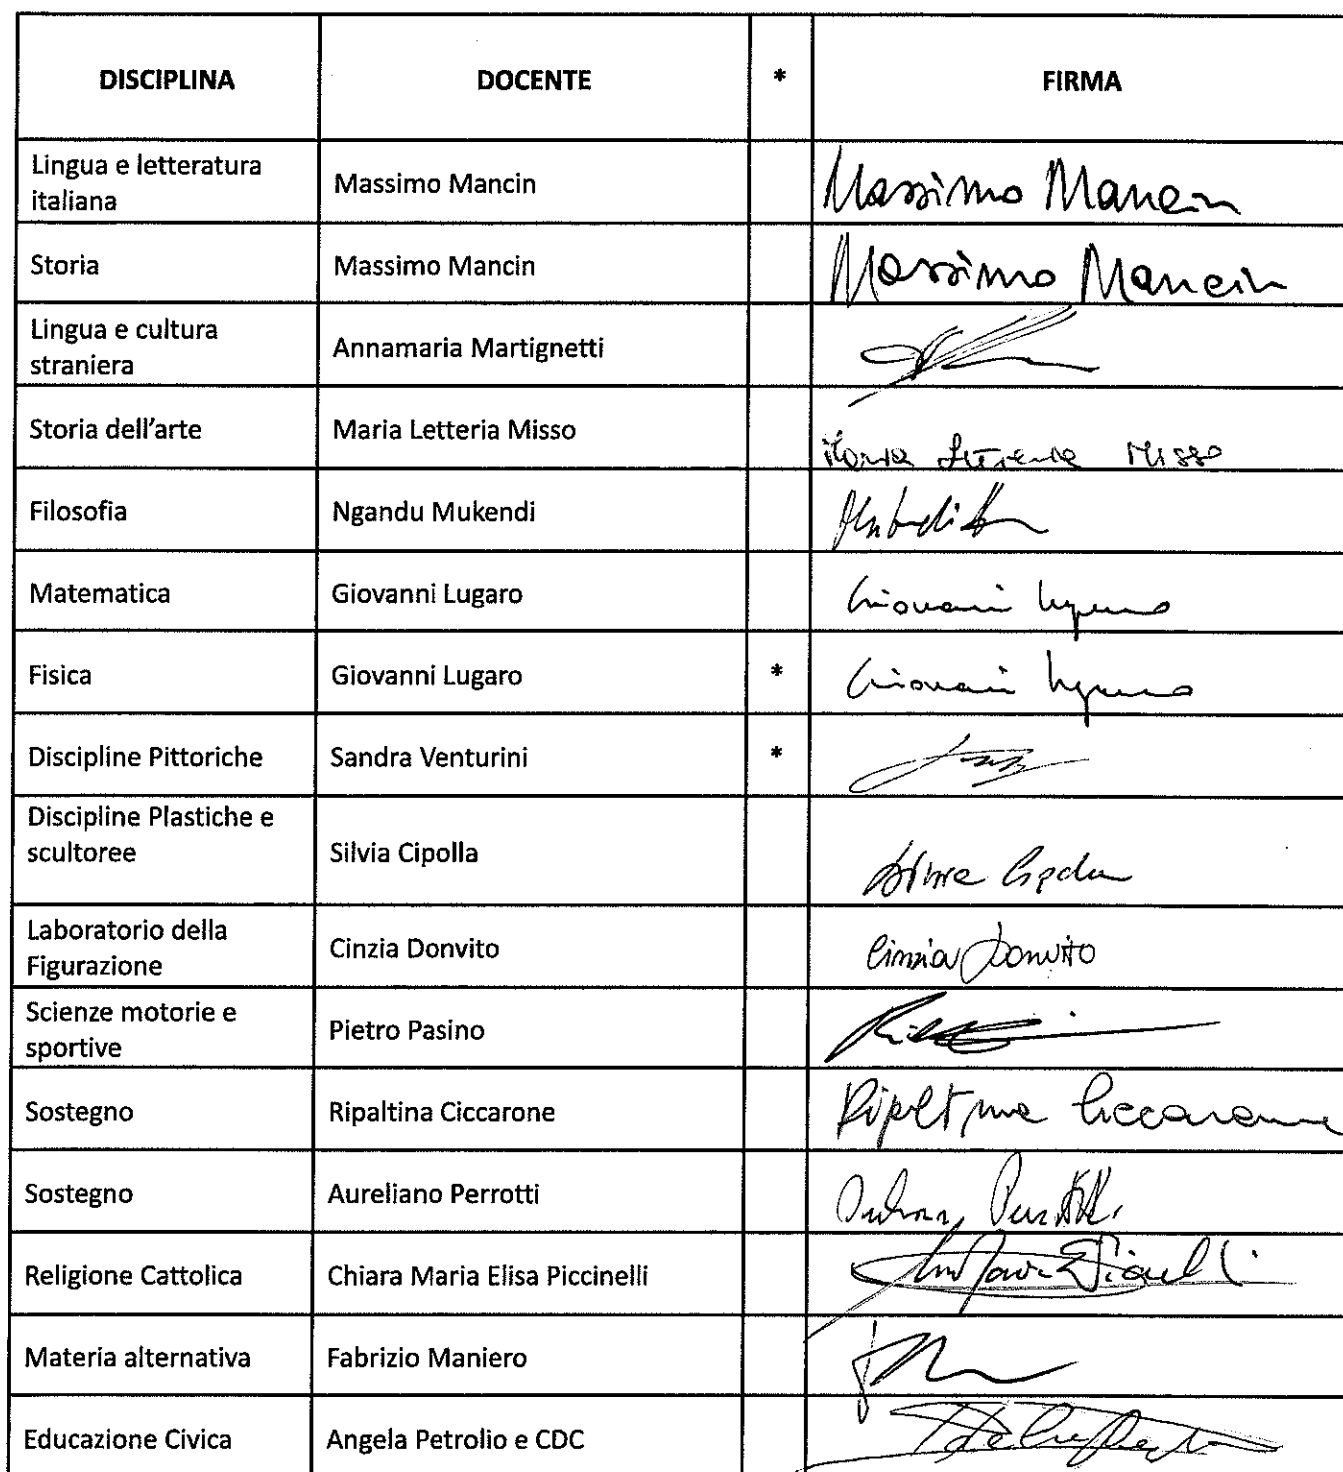 DISCIPLINA DOCENTE * FIRMA
Lingua e letteratura
italiana
Massimo Mancin Massimo Mancin
Storia Massimo Mancin Massimo Mancin
Lingua e cultura
straniera
Annamaria Martignetti
Storia dell'arte Maria Letteria Misso Maria Letteria Misso
Filosofia Ngandu Mukendi
Matematica Giovanni Lugaro Giovanni Lugaro
Fisica Giovanni Lugaro * Giovanni Lugaro
Discipline Pittoriche Sandra Venturini *
Discipline Plastiche e
scultoree
Silvia Cipolla Silvia Cipolla
Laboratorio della
Figurazione
Cinzia Donvito Cinzia Donvito
Scienze motorie e
sportive
Pietro Pasino
Sostegno Ripaltina Ciccarone Ripaltina Ciccarone
Sostegno Aureliano Perrotti
Religione Cattolica Chiara Maria Elisa Piccinelli
Materia alternativa Fabrizio Maniero
Educazione Civica Angela Petrolio e CDC